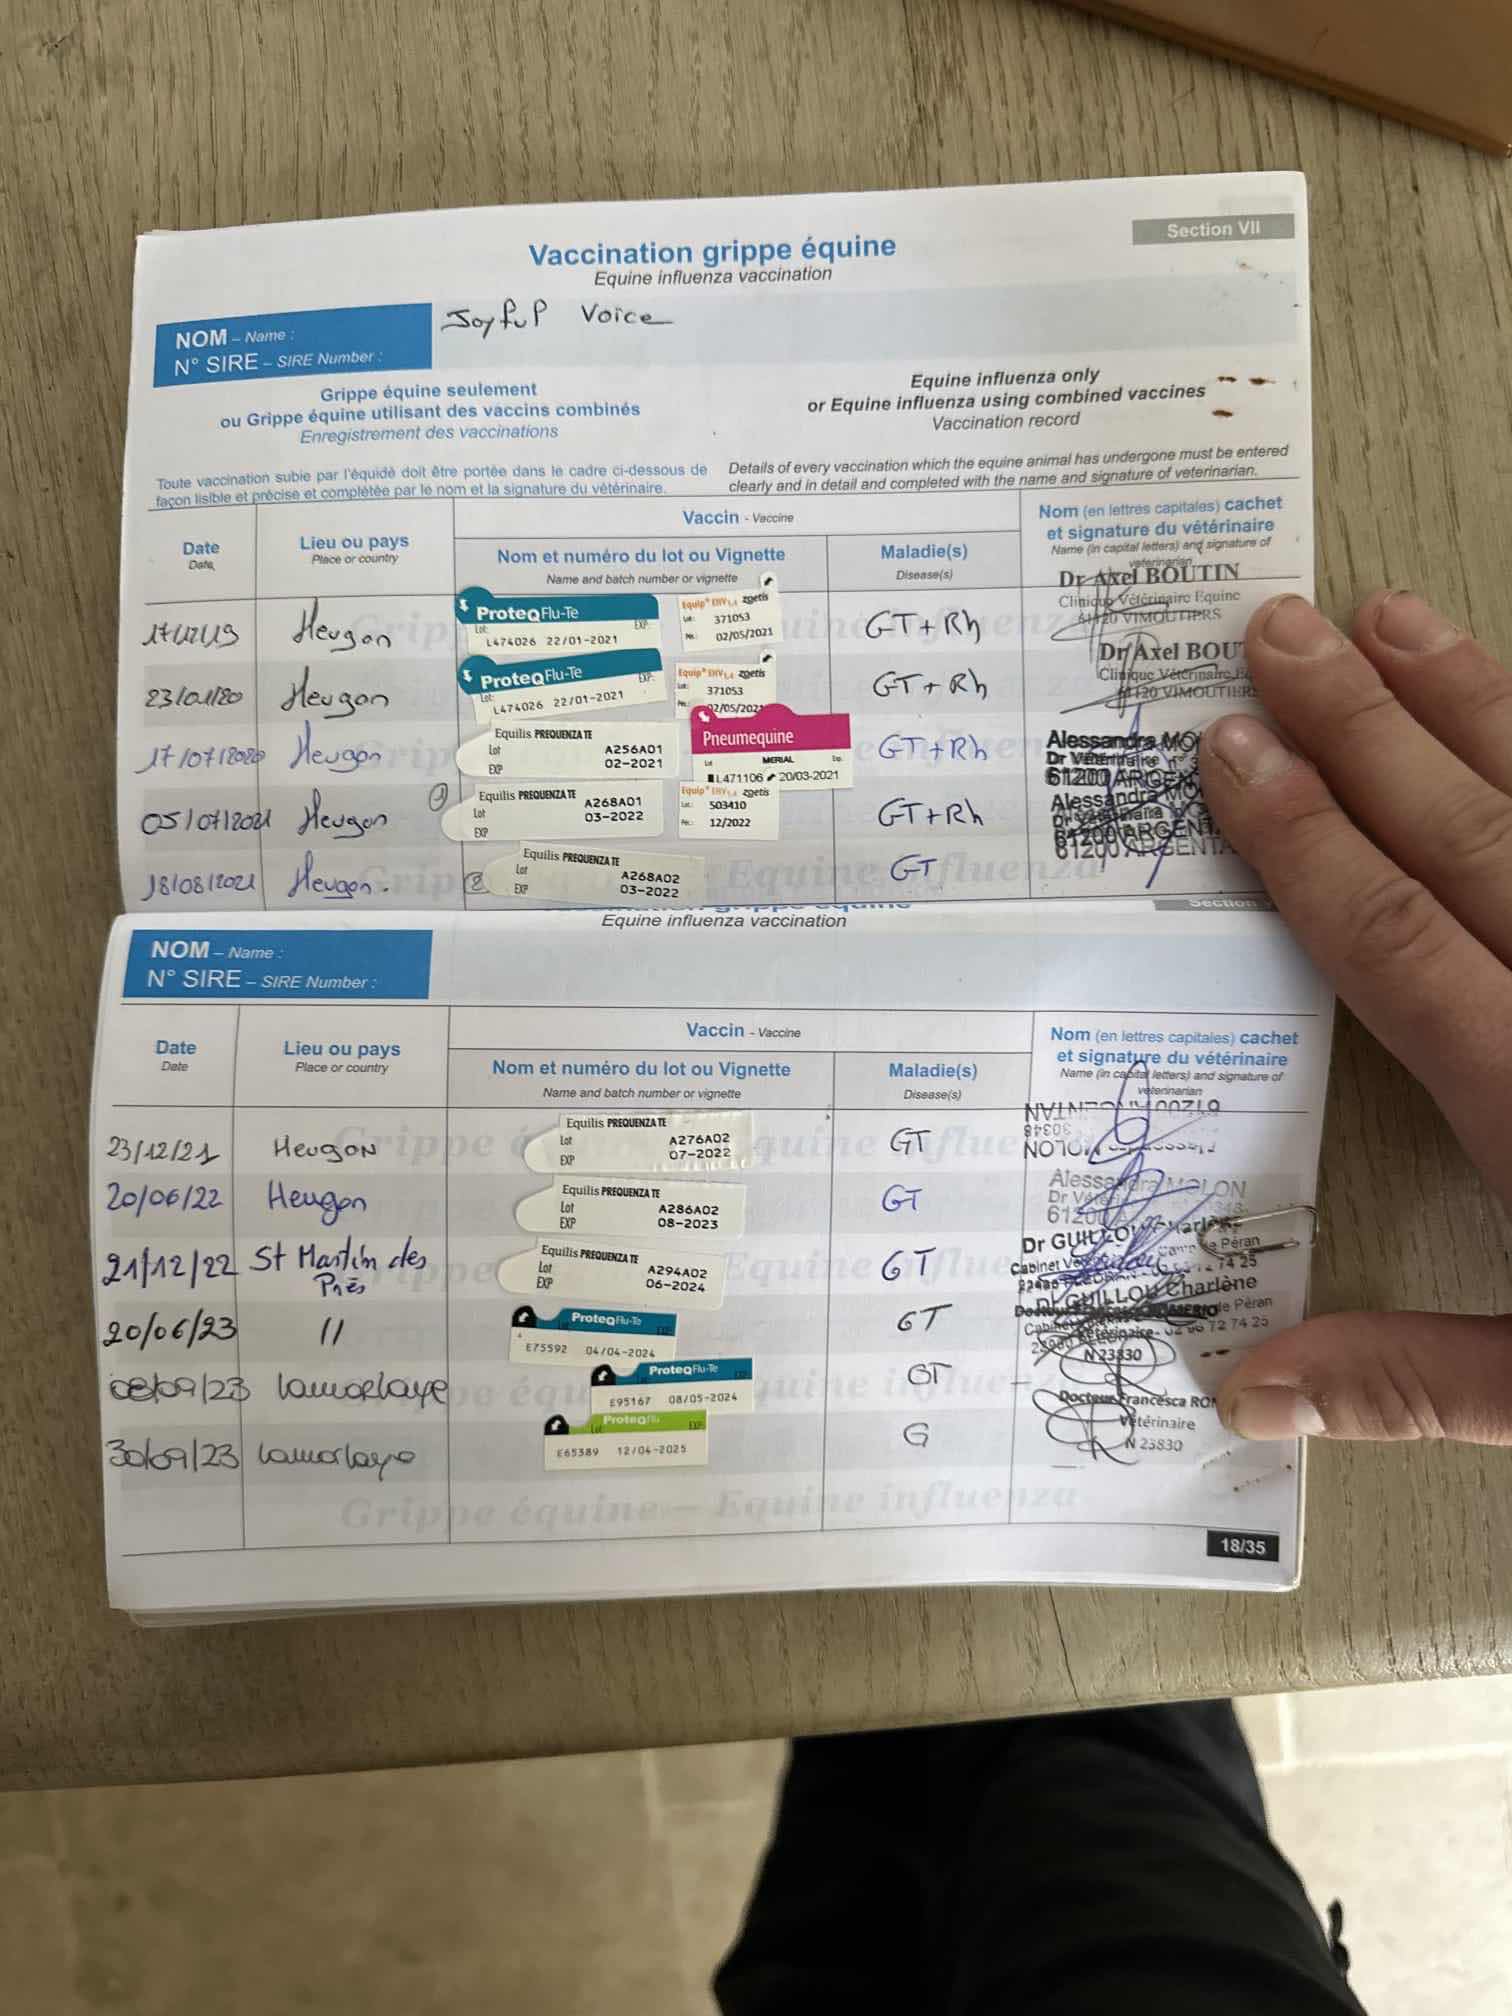 Section VII
Vaccination grippe équine
Equine influenza vaccination
NOM – Name :
Joyful Voice
N° SIRE – SIRE Number :
Grippe équine seulement
ou Grippe équine utilisant des vaccins combinés
Enregistrement des vaccinations
Equine influenza only
or Equine influenza using combined vaccines
Vaccination record
Toute vaccination subie par l'équidé doit être portée dans le cadre ci-dessous de
façon lisible et précise et complétée par le nom et la signature du vétérinaire.
Details of every vaccination which the equine animal has undergone must be entered
clearly and in detail and completed with the name and signature of veterinarian.
Date
Date
Lieu ou pays
Place or country
Vaccin - Vaccine
Nom et numéro du lot ou Vignette
Name and batch number or vignette
Maladie(s)
Disease(s)
Nom (en lettres capitales) cachet
et signature du vétérinaire
Name (in capital letters) and signature of
veterinarian
17/12/19 Heugon
ProteqFlu-Te
Lot: EXP:
L474026 22/01-2021
Equip® EHV1,4 zoetis
Lot: 371053
Pér.: 02/05/2021
GT+Rh
Dr Axel BOUTIN
Clinique Vétérinaire Equine
61120 VIMOUTIERS
23/01/20 Heugon
ProteqFlu-Te
Lot: EXP:
L474026 22/01-2021
Equip® EHV1,4 zoetis
Lot: 371053
Pér.: 02/05/2021
GT+Rh
Dr Axel BOUT
Clinique Vétérinaire Eq
61120 VIMOUTIERS
17/07/2020 Heugon
Equilis PREQUENZA TE
Lot A256A01
EXP 02-2021
Pneumequine
MERIAL
Lot Exp.
L471106 20/03-2021
GT+Rh
Alessandra MO
Dr Vétérinaire n°
61200 ARGEN
05/07/2021 Heugon
1
Equilis PREQUENZA TE
Lot A268A01
EXP 03-2022
Equip® EHV1,4 zoetis
Lot: 503410
Pér.: 12/2022
GT+Rh
Alessandra MO
Dr Vétérinaire
61200 ARGENTA
18/08/2021 Heugon.
2
Equilis PREQUENZA TE
Lot A268A02
EXP 03-2022
GT
Grippe équine – Equine influenza
Section
Equine influenza vaccination
NOM – Name :
N° SIRE – SIRE Number :
Date
Date
Lieu ou pays
Place or country
Vaccin - Vaccine
Nom et numéro du lot ou Vignette
Name and batch number or vignette
Maladie(s)
Disease(s)
Nom (en lettres capitales) cachet
et signature du vétérinaire
Name (in capital letters) and signature of
veterinarian
23/12/21 Heugon
Equilis PREQUENZA TE
Lot A276A02
EXP 07-2022
GT
61200 ARGENTAN
30348
MOLON
20/06/22 Heugon
Equilis PREQUENZA TE
Lot A286A02
EXP 08-2023
GT
Alessandra MOLON
Dr Vétérinaire
61200
21/12/22 St Martin des
Prés
Equilis PREQUENZA TE
Lot A294A02
EXP 06-2024
GT
Dr GUILLOU Charlène
20/06/23 //
ProteqFlu-Te
Lot: EXP:
E75592 04/04-2024
GT
Dr GUILLOU Charlène
72 74 25
N 23830
08/09/23 Lamorlaye
ProteqFlu-Te
E95167 08/05-2024
GT
30/09/23 Lamorlaye
ProteqFlu
Lot: EXP:
E65389 12/04-2025
G
Docteur Francesca ROM
Vétérinaire
N 23830
Grippe équine – Equine influenza
18/35